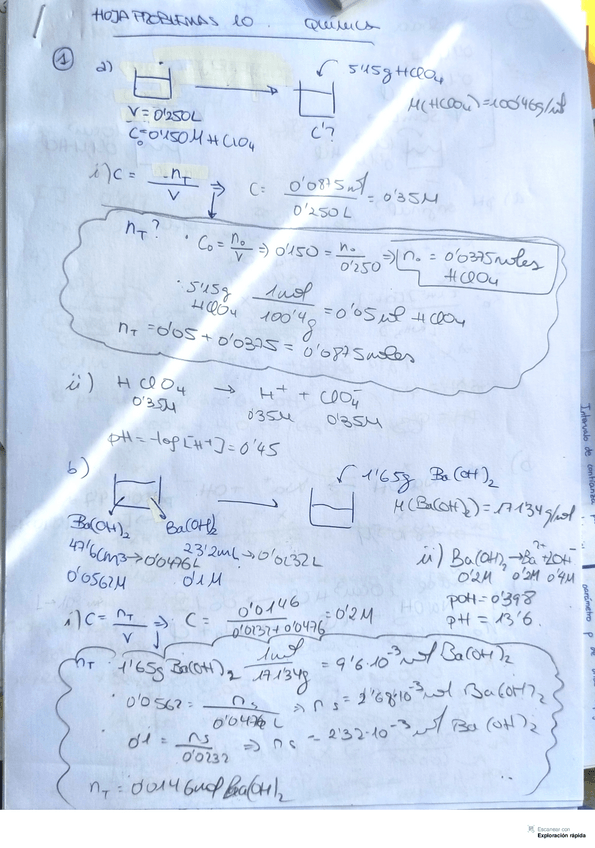 HOJA PROBLEMAS 10. QUÍMICA
1
a)
5'15g HClO4
M(HClO4)=100'46g/mol
V=0'250L
C0=0'150M HClO4
C'?
i) C = nT/V ⇒ C= 0'0875mol/0'250L = 0'35M
nT?
· C0 = n0/V ⇒ 0'150 = n0/0'250 ⇒ n0 = 0'0375moles HClO4
· 5'15g HClO4 1mol/100'4g = 0'05mol HClO4
nT = 0'05 + 0'0375 = 0'0875moles
ii) HClO4 → H+ + ClO4-
0'35M 0'35M 0'35M
pH = -log[H+] = 0'45
b)
1'65g Ba(OH)2
M(Ba(OH)2)=171'34g/mol
Ba(OH)2 Ba(OH)2
47'6cm3→0'0476L 23'2mL→0'0232L
0'0562M 0'1M
ii) Ba(OH)2→Ba2+ 2OH-
0'2M 0'2M 0'4M
pOH=0'398
pH=13'6
i) C = nT/V ⇒ C = 0'0146/0'0232+0'0476 = 0'2M
nT 1'65g Ba(OH)2 1mol/171'34g = 9'6·10-3 mol Ba(OH)2
· 0'0562 = ns/0'0476L ⇒ ns = 2'68·10-3 mol Ba(OH)2
· 0'1 = ns/0'0232 ⇒ ns = 2'32·10-3 mol Ba(OH)2
nT = 0'0146mol Ba(OH)2
Intervalo de confianza
parámetro p de
Escanear con
Exploración rápida